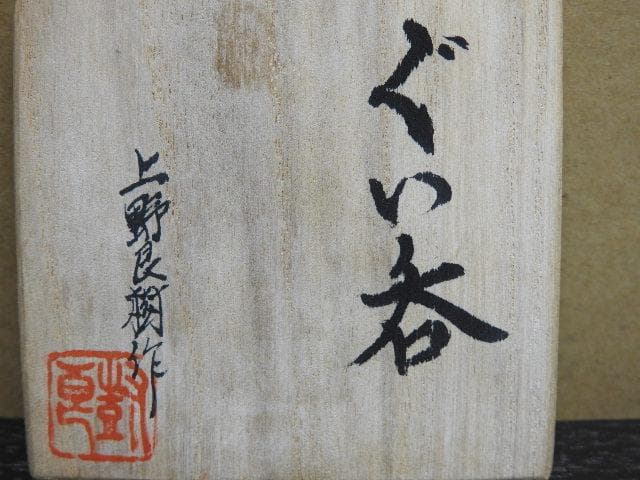 ぐい呑
上野良樹作
良樹